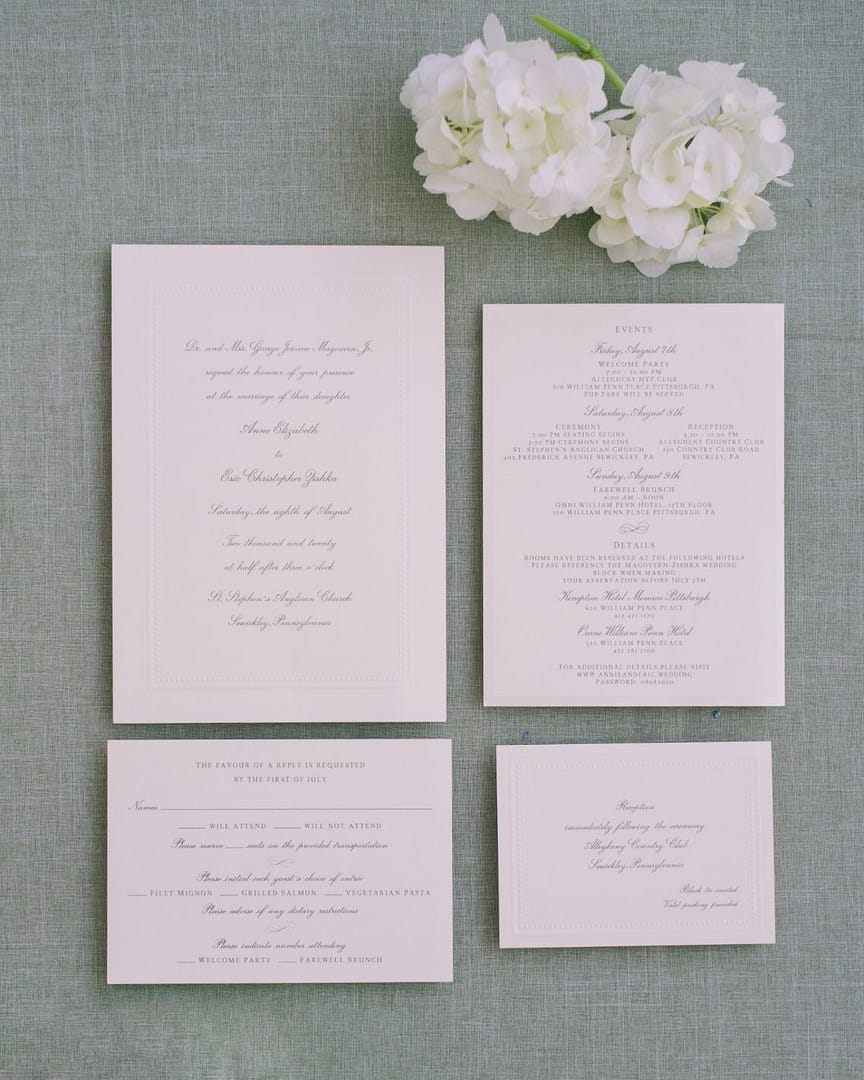 Dr. and Mrs. George Jerome Magovern, Jr.
request the honour of your presence
at the marriage of their daughter
Anne Elizabeth
to
Eric Christopher Zishka
Saturday, the eighth of August
Two thousand and twenty
at half after three o'clock
St. Stephen's Anglican Church
Sewickley, Pennsylvania
EVENTS
Friday, August 7th
WELCOME PARTY
7:00 - 10:00 PM
ALLEGHENY HYP CLUB
619 WILLIAM PENN PLACE PITTSBURGH, PA
PUB FARE WILL BE SERVED
Saturday, August 8th
CEREMONY
3:00 PM SEATING BEGINS
3:30 PM CEREMONY BEGINS
ST. STEPHEN'S ANGLICAN CHURCH
405 FREDERICK AVENUE SEWICKLEY, PA
RECEPTION
4:30 - 10:30 PM
ALLEGHENY COUNTRY CLUB
250 COUNTRY CLUB ROAD
SEWICKLEY, PA
Sunday, August 9th
FAREWELL BRUNCH
9:00 AM - NOON
OMNI WILLIAM PENN HOTEL, 17TH FLOOR
530 WILLIAM PENN PLACE PITTSBURGH, PA
DETAILS
ROOMS HAVE BEEN RESERVED AT THE FOLLOWING HOTELS
PLEASE REFERENCE THE MAGOVERN-ZISHKA WEDDING
BLOCK WHEN MAKING
YOUR RESERVATION BEFORE JULY 7TH
Kimpton Hotel Monaco Pittsburgh
620 WILLIAM PENN PLACE
412.471.1170
Omni William Penn Hotel
530 WILLIAM PENN PLACE
412.281.7100
FOR ADDITIONAL DETAILS PLEASE VISIT
WWW.ANNILANDERIC.WEDDING
PASSWORD: 08082020
THE FAVOUR OF A REPLY IS REQUESTED
BY THE FIRST OF JULY
Names
WILL ATTEND WILL NOT ATTEND
Please reserve seats on the provided transportation
Please initial each guest's choice of entrée
FILET MIGNON GRILLED SALMON VEGETARIAN PASTA
Please advise of any dietary restrictions
Please indicate number attending
WELCOME PARTY FAREWELL BRUNCH
Reception
immediately following the ceremony
Allegheny Country Club
Sewickley, Pennsylvania
Black tie invited
Valet parking provided